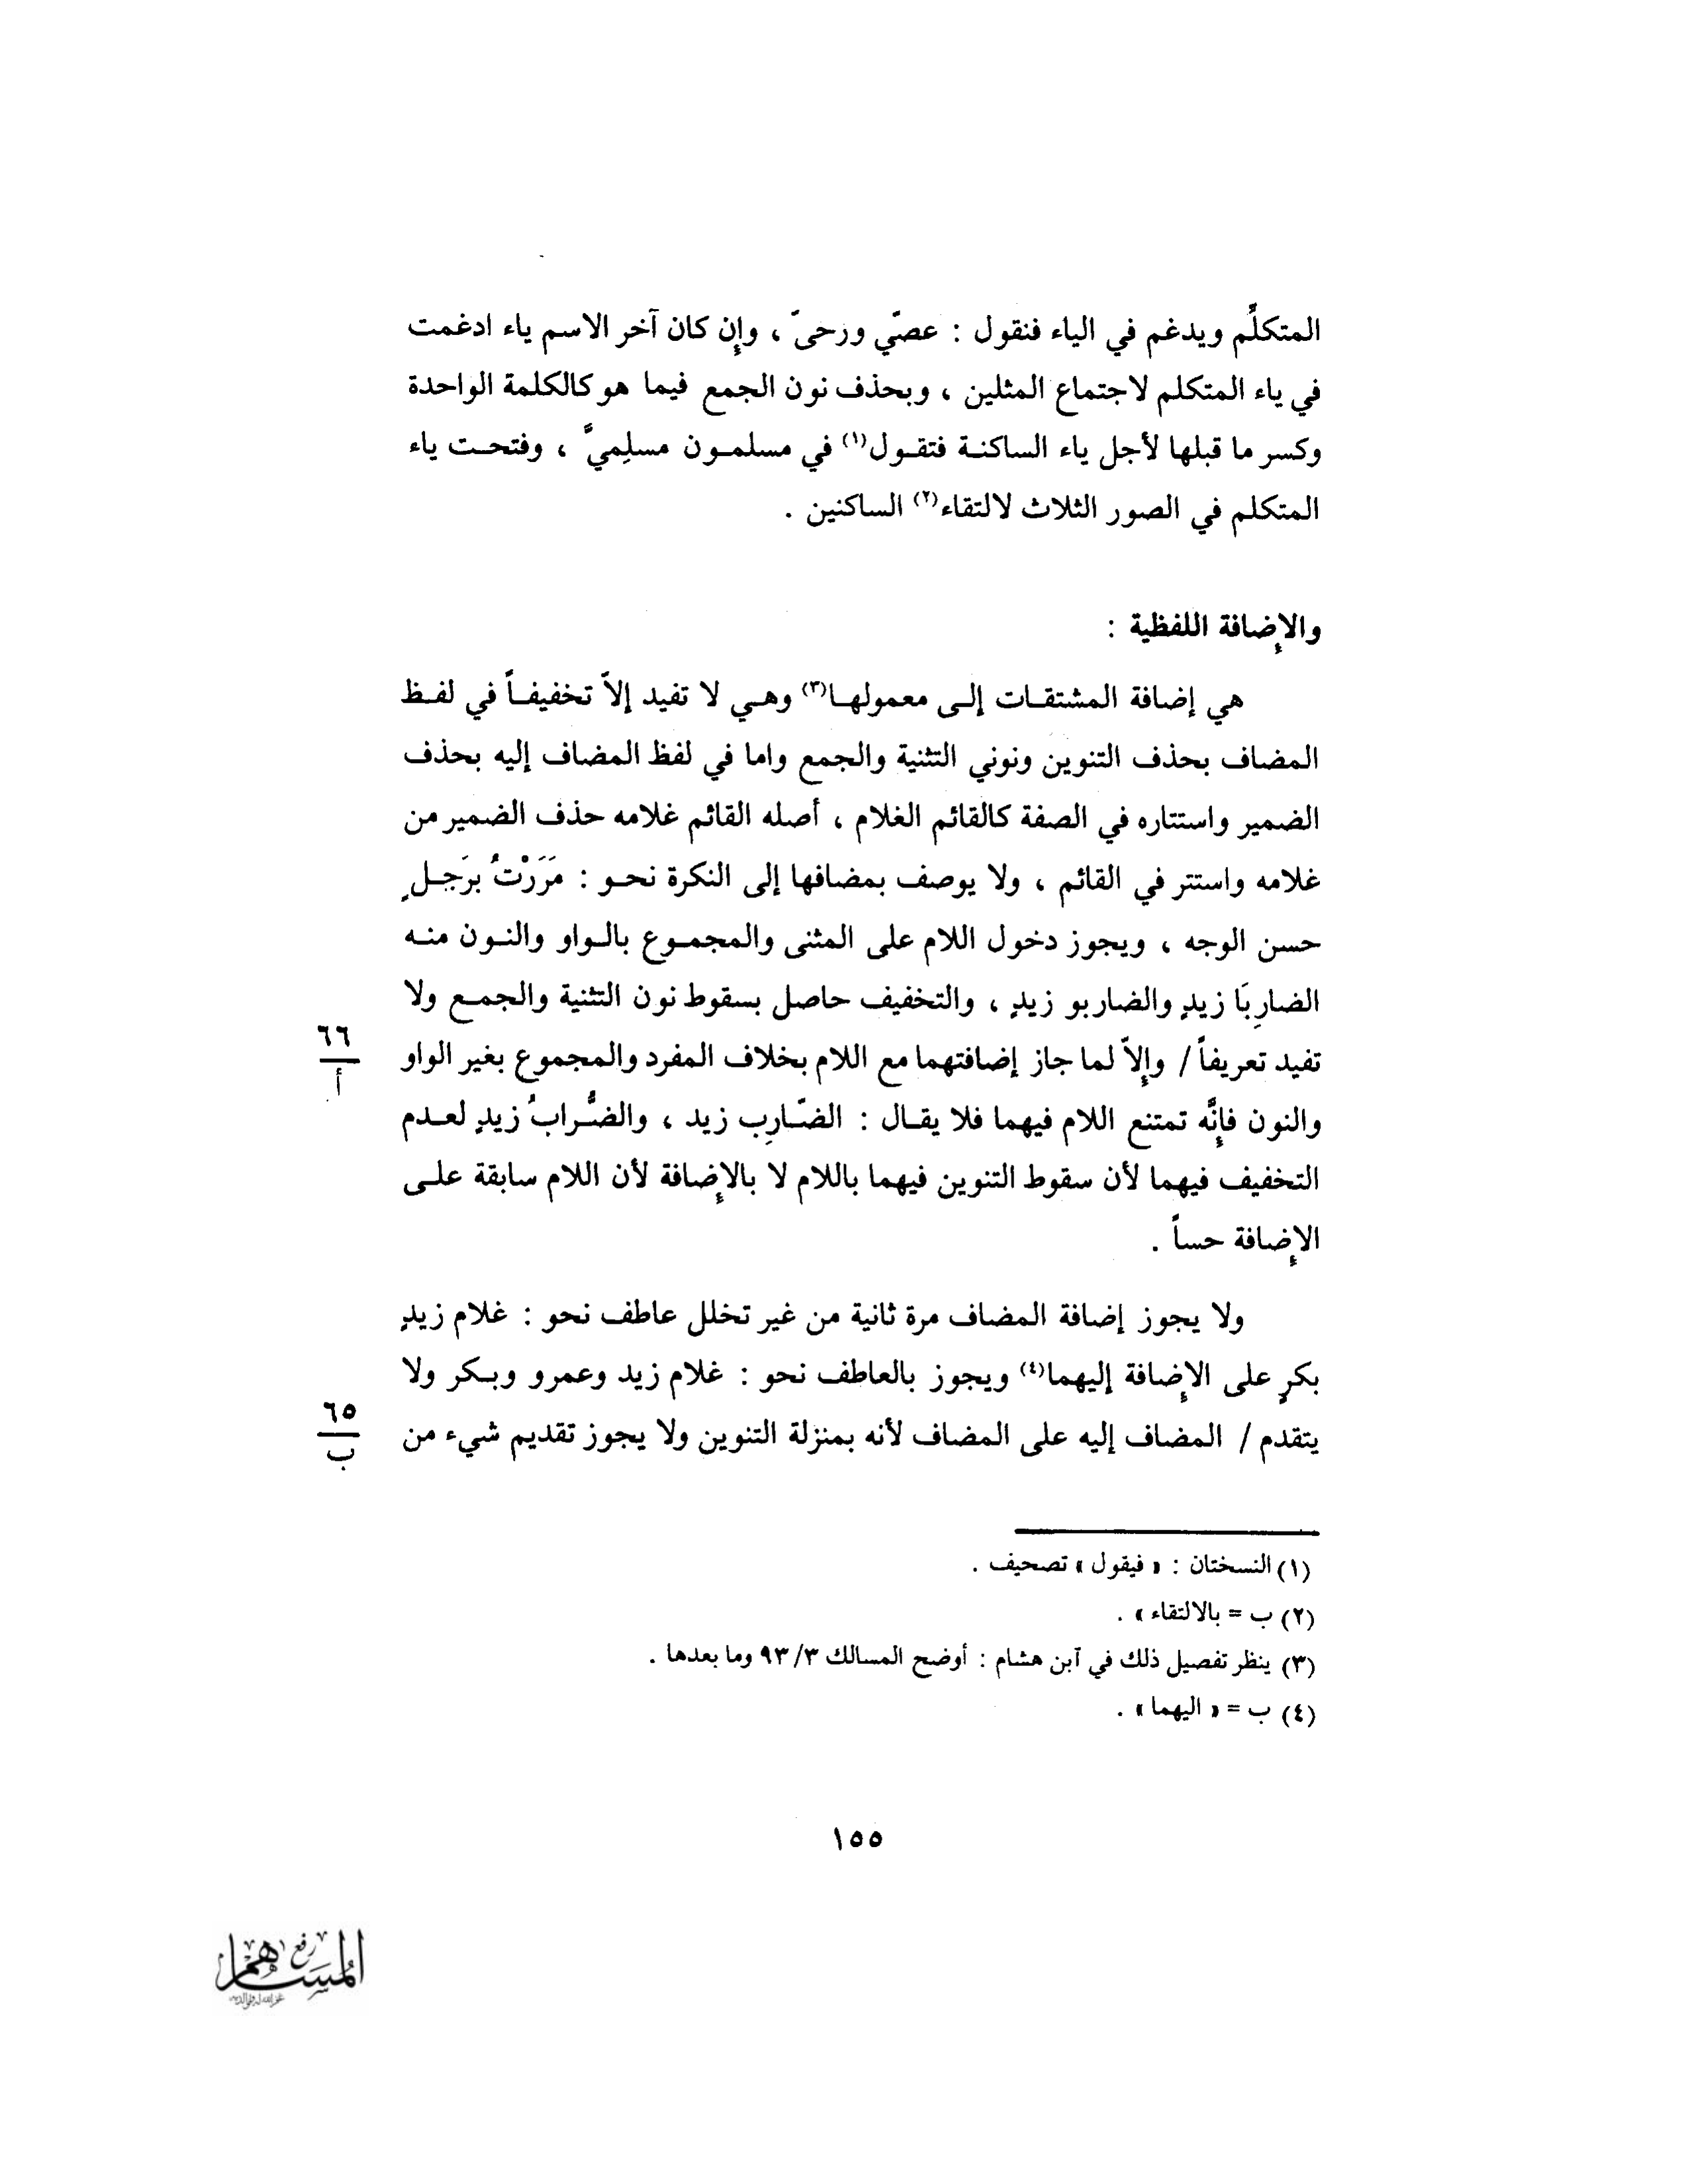 المتكلِّم ويدغم في الياء فنقول : عصيّ ورحىّ ، وإن كان آخر الاسم ياء ادغمت
في ياء المتكلم لاجتماع المثلين ، وبحذف نون الجمع فيما هو كالكلمة الواحدة
وكسر ما قبلها لأجل ياء الساكنة فتقول(١) في مسلمون مسلِميَّ ، وفتحت ياء
المتكلم في الصور الثلاث لالتقاء(٢) الساكنين .
والإضافة اللفظية :
هي إضافة المشتقات إلى معمولها(٣) وهي لا تفيد إلاّ تخفيفاً في لفظ
المضاف بحذف التنوين ونوني التثنية والجمع واما في لفظ المضاف إليه بحذف
الضمير واستتاره في الصفة كالقائم الغلام ، أصله القائم غلامه حذف الضمير من
غلامه واستتر في القائم ، ولا يوصف بمضافها إلى النكرة نحو : مَرَرْتُ برَجلٍ
حسن الوجه ، ويجوز دخول اللام على المثنى والمجموع بالواو والنون منه
الضارِبَا زيدٍ والضاربو زيدٍ ، والتخفيف حاصل بسقوط نون التثنية والجمع ولا
تفيد تعريفاً / وإلاّ لما جاز إضافتهما مع اللام بخلاف المفرد والمجموع بغير الواو
٦٦
أ
والنون فإنَّه تمتنع اللام فيهما فلا يقال : الضّارِب زيد ، والضُّرابُ زيدٍ لعدم
التخفيف فيهما لأن سقوط التنوين فيهما باللام لا بالإضافة لأن اللام سابقة على
الإضافة حساً .
ولا يجوز إضافة المضاف مرة ثانية من غير تخلل عاطف نحو : غلام زيدٍ
بكرٍ على الإضافة إليهما(٤) ويجوز بالعاطف نحو : غلام زيد وعمرو وبكر ولا
يتقدم / المضاف إليه على المضاف لأنه بمنزلة التنوين ولا يجوز تقديم شيء من
٦٥
ب
(١) النسختان : « فيقول » تصحيف .
(٢) ب = بالالتقاء » .
(٣) ينظر تفصيل ذلك في آبن هشام : أوضح المسالك ٩٣/٣ وما بعدها .
(٤) ب = « اليهما » .
١٥٥
رفع
المساهم
غفر الله له ولوالديه